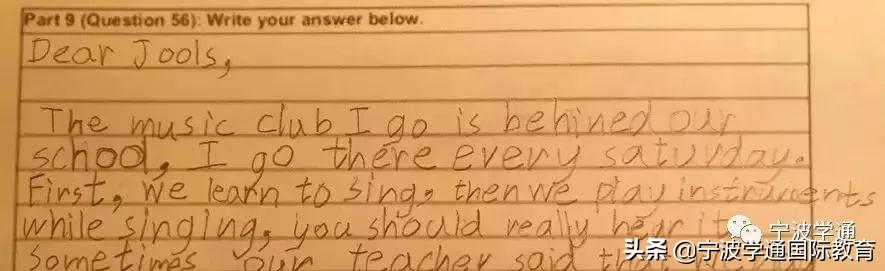 Part 9 (Question 56): Write your answer below.
Dear Jools,
The music club I go is behined our
school, I go there every saturday.
First, we learn to sing, then we play instruments
while singing, you should really hear it
宁波学通
sometimes our teacher said that
头条 @宁波学通国际教育